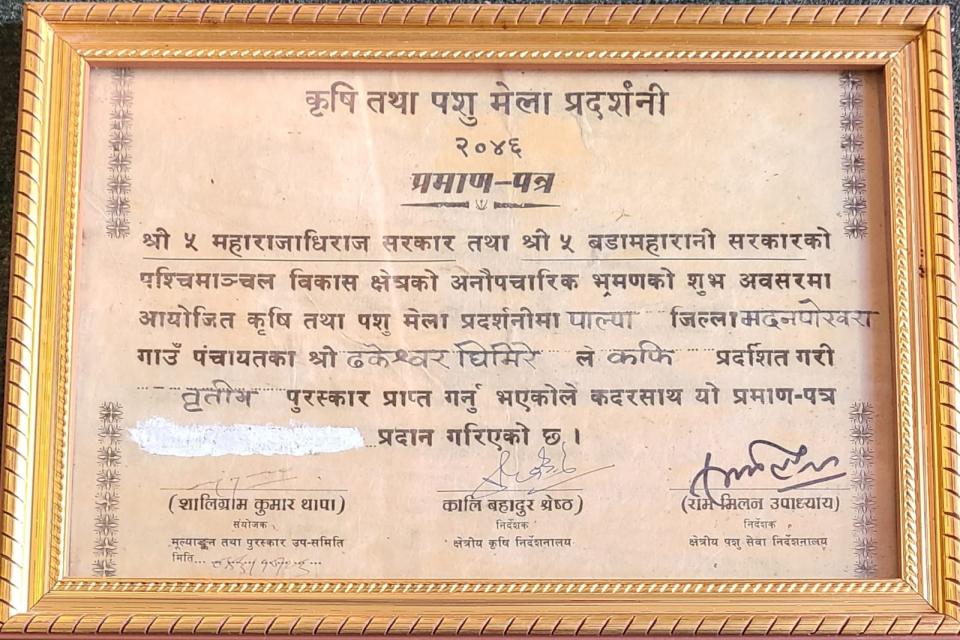 कृषि तथा पशु मेला प्रदर्शनी
२०४६
प्रमाण-पत्र
श्री ५ महाराजाधिराज सरकार तथा श्री ५ बडामहारानी सरकारको
पश्चिमाञ्चल विकास क्षेत्रको अनौपचारिक भ्रमणको शुभ अवसरमा
आयोजित कृषि तथा पशु मेला प्रदर्शनीमा पाल्पा जिल्ला मदनपोखरा
गाउँ पंचायतका श्री ढकेश्वर घिमिरे ले कफि प्रदर्शित गरी
तृतीय पुरस्कार प्राप्त गर्नु भएकोले कदरसाथ यो प्रमाण-पत्र
प्रदान गरिएको छ ।
(शालिग्राम कुमार थापा) कालि बहादुर श्रेष्ठ) (राम मिलन उपाध्याय)
संयोजक निर्देशक निर्देशक
मूल्याङ्कन तथा पुरस्कार उप-समिति क्षेत्रीय कृषि निर्देशनालय क्षेत्रीय पशु सेवा निर्देशनालय
मिति...